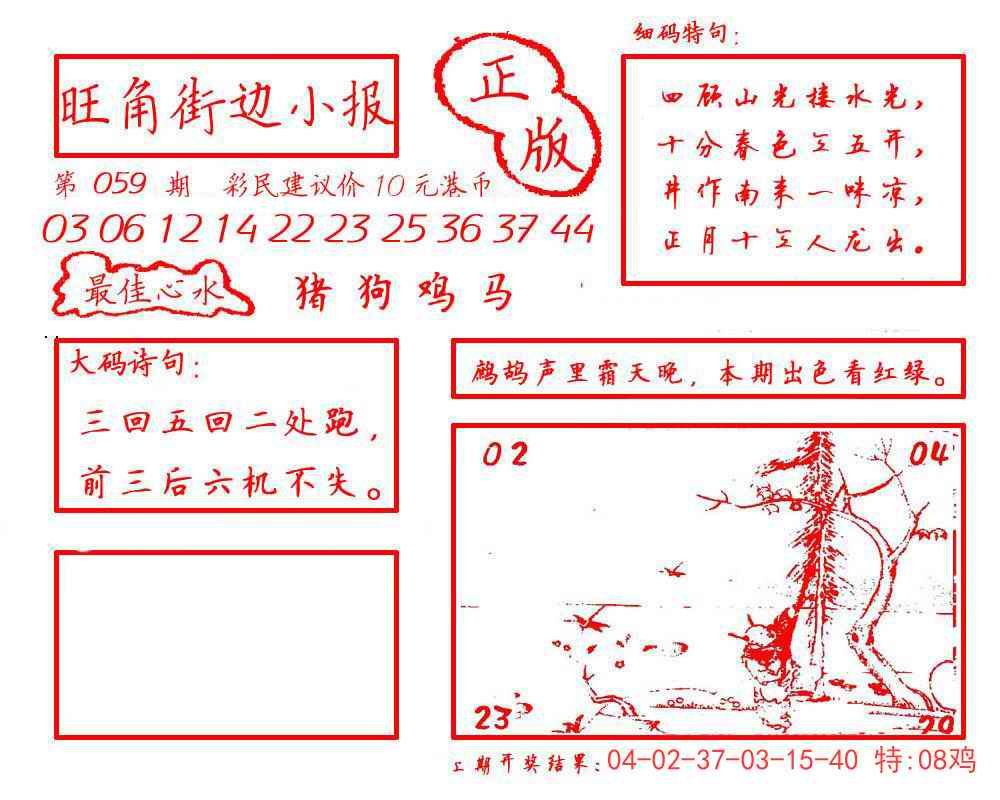 旺角街边小报
正版
第 059 期 彩民建议价 10 元港币
03 06 12 14 22 23 25 36 37 44
最佳心水 猪 狗 鸡 马
细码特句:
四顾山光接水光,
十分春色三五开,
井作南来一味凉,
正月十三人龙出。
大码诗句:
三回五回二处跑,
前三后六机不失。
鹧鸪声里霜天晚,本期出色看红绿。
02 04
23 20
上期开奖结果: 04-02-37-03-15-40 特:08鸡